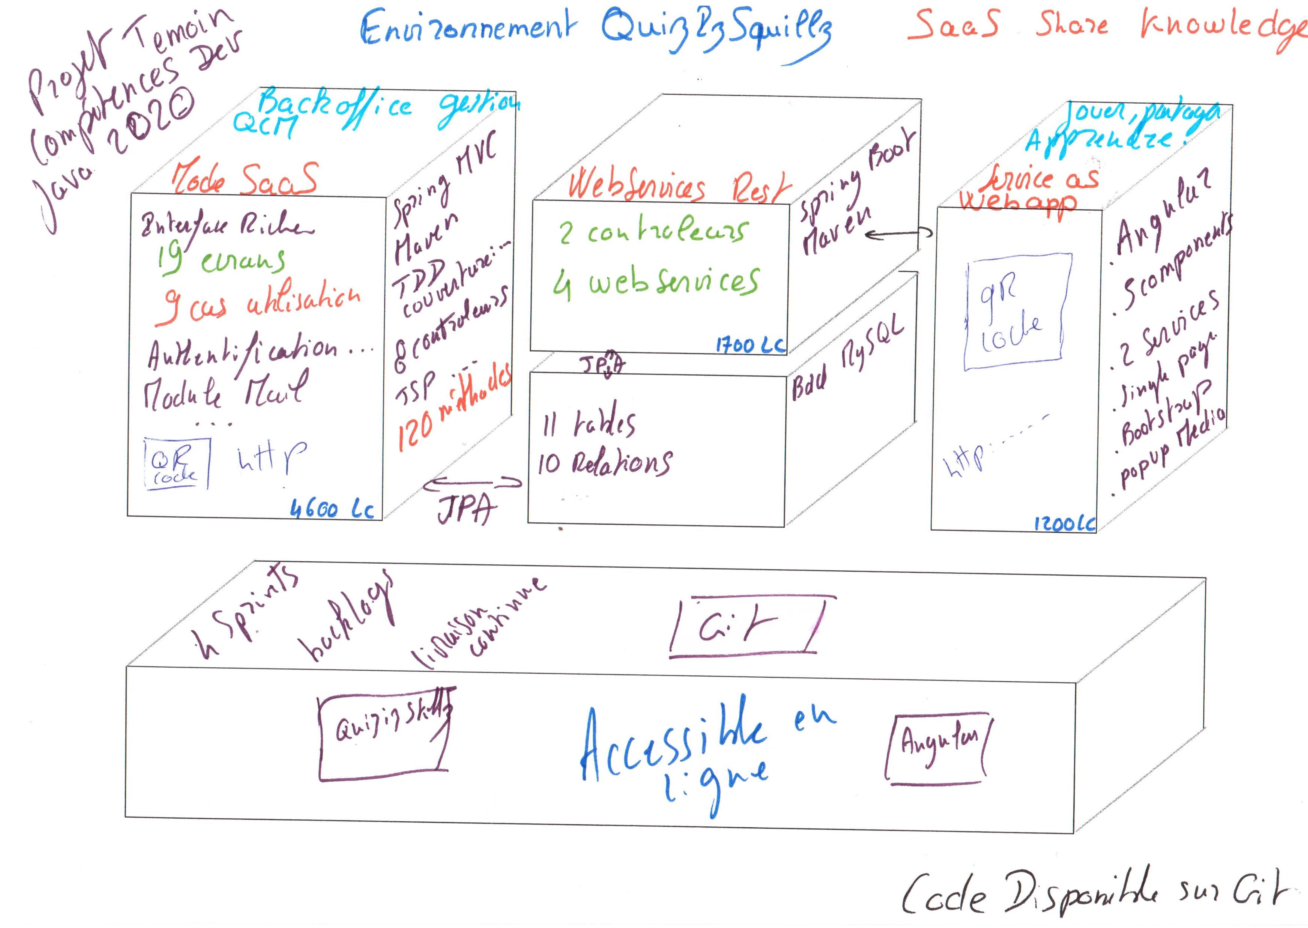 Projet Temoin
Competences Dev
Java 2020
Environnement QuizzSquillz
SaaS Share Knowledge
Backoffice gestion
QCM
Mode SaaS
Interface Riche
19 ecrans
9 cas utilisation
Authentification ...
Module Mail
...
QR
code
http
4600 LC
Spring MVC
Maven
TDD
couverture...
8 controleurs
JSP ...
120 méthodes
JPA
WebServices Rest
2 controleurs
4 webservices
1700 LC
Spring Boot
Maven
JPA
11 tables
10 Relations
...
Bdd MySQL
Jouer, partager
Apprendre.
Service as
Webapp
QR
code
http......
1200LC
. Angular
. 5components
. 2 Services
. Single page
. Bootstrap
. popup Media
4 Sprints
backlogs
livraison
continue
Git
Accessible en
ligne
Angular
Code Disponible sur Git